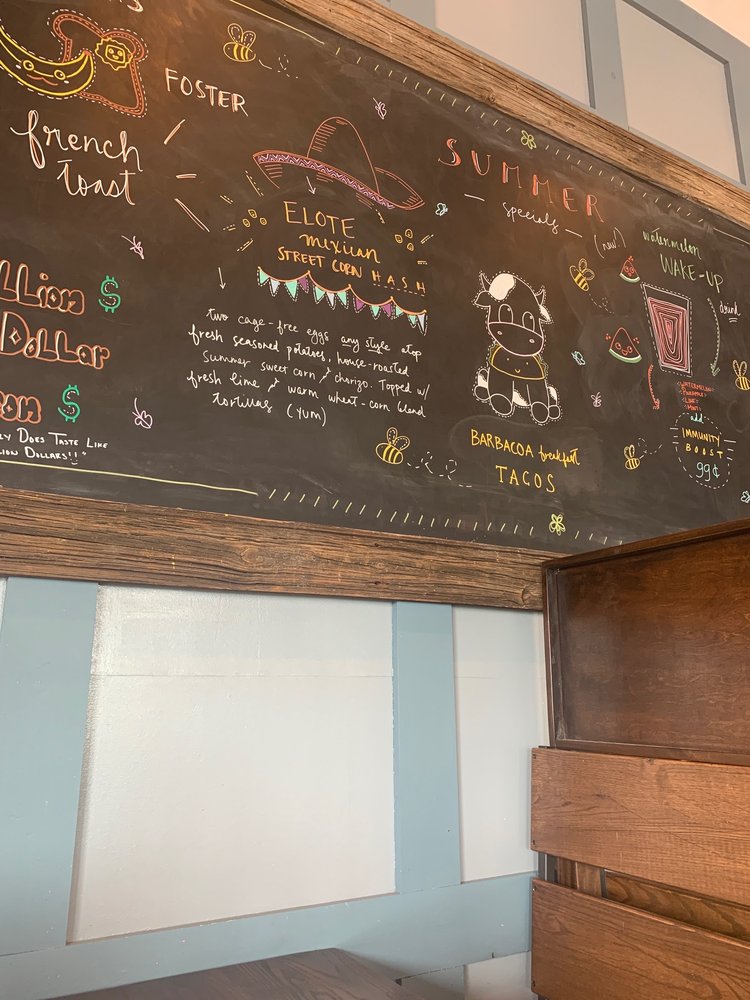 FOSTER
french
toast
LLion
Dollar
on
LY DOES TASTE LIKE
LION DOLLARS!!"
ELOTE
mexican
STREET CORN HASH
two cage-free eggs any style atop
fresh seasoned potatoes, house-roasted
summer sweet corn & chorizo. Topped w/
fresh lime & warm wheat-corn blend
tortillas (YUM)
SUMMER
- specials -
BARBACOA breakfast
TACOS
(new!) watermelon
WAKE-UP
drink
WATERMELON
PINEAPPLE
LIME
MINT
add
IMMUNITY
BOOST
99¢